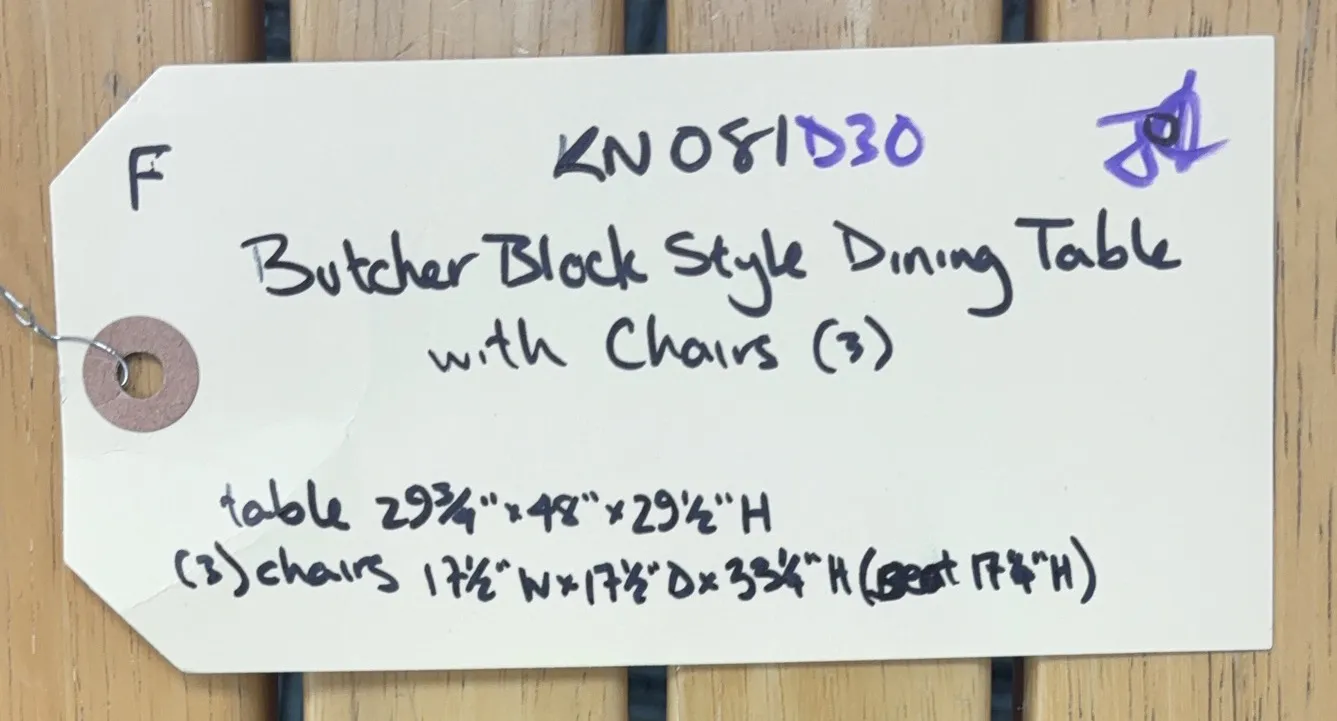 F
KN081D30
Butcher Block Style Dining Table
with Chairs (3)
table 29¾" x 48" x 29½" H
(3) chairs 17½" W x 17½" D x 33¼" H (seat 17¾" H)